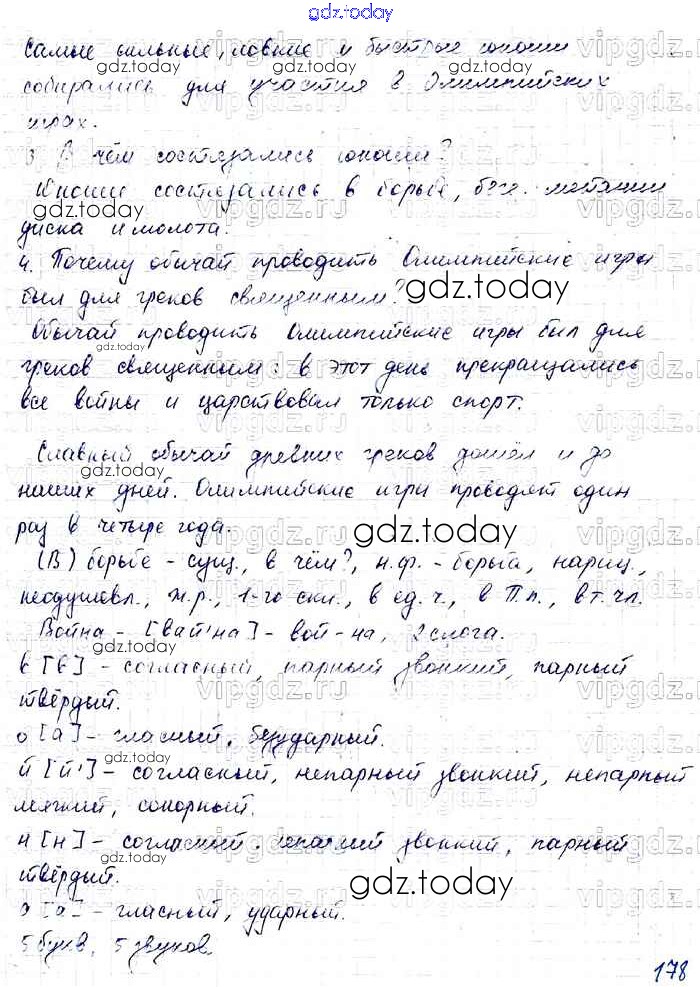 gdz.today
Самые сильные, ловкие и быстрые юноши
собирались для участия в Олимпийских
играх.
3. В чём состязались юноши?
Юноши состязались в борьбе, беге, метании
диска и молота.
4. Почему обычай проводить Олимпийские игры
был для греков священным?
Обычай проводить Олимпийские игры был для
греков священным: в этот день прекращались
все войны и царствовал только спорт.
Славный обычай древних греков дошёл и до
наших дней. Олимпийские игры проводят один
раз в четыре года.
(В) борьбе - сущ., в чём?, н.ф. - борьба, нариц.,
неодушевл., ж.р., 1-го скл., в ед.ч., в П.п., вт.чл.
Война - [вай'на] - вой-на, 2 слога.
в [в] - согласный, парный звонкий, парный
твёрдый.
о [а] - гласный, безударный.
й [й'] - согласный, непарный звонкий, непарный
мягкий, сонорный.
н [н] - согласный, непарный звонкий, парный
твёрдый.
а [а] - гласный, ударный.
5 букв, 5 звуков.
178